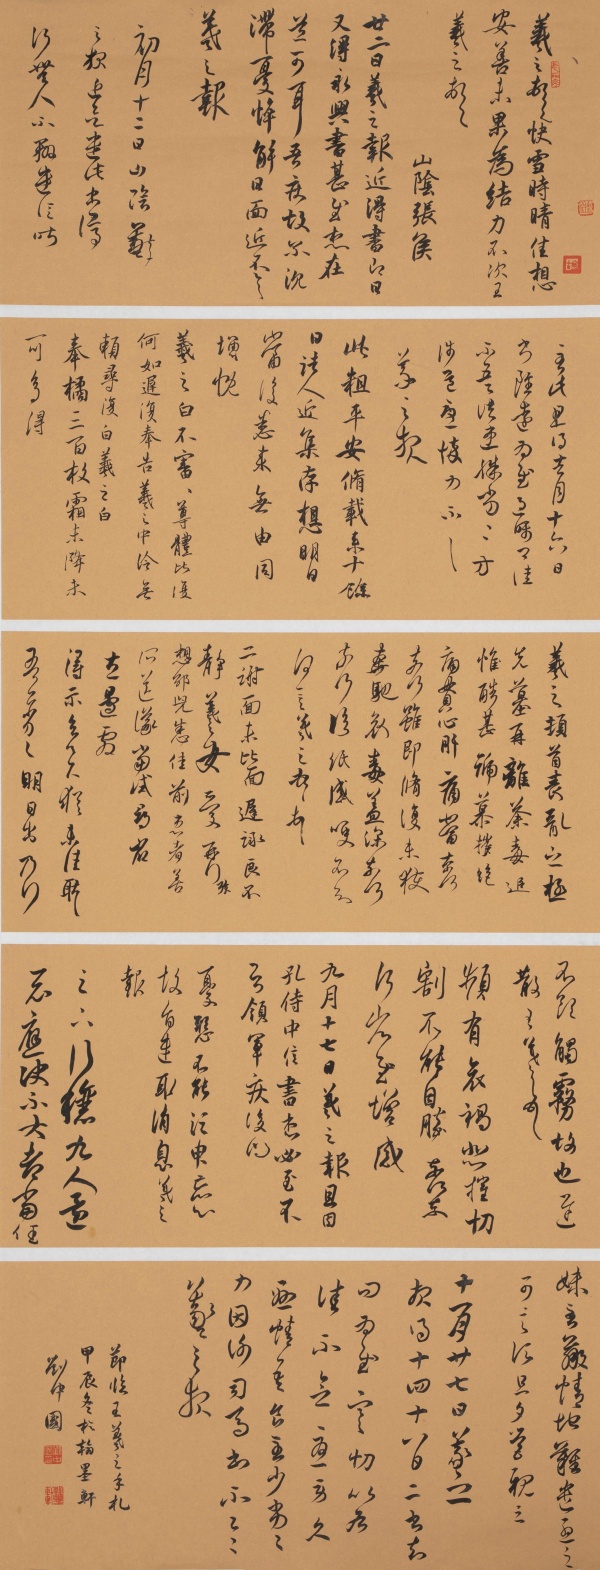 羲之頓首快雪時晴佳想
安善未果為結力不次王
羲之頓首
山陰張侯
廿二日羲之報近得書即日
又得永興書甚慰想在
並可耳吾疾故爾沈
滯憂悴解日面近不具
羲之報
初月十二日山陰羲
之報
行無人不辦遣信昨
羲之報
此粗平安脩載來十餘
日諸人近集存想明日
當復悉來無由同
增慨
羲之白不審尊體比復
何如遲復奉告羲之中冷無
賴尋復白羲之白
奉橘三百枚霜未降未
可多得
羲之頓首喪亂之極
先墓再離荼毒追
惟酷甚號慕摧絕
痛貫心肝痛當奈何
奈何雖即脩復未獲
奔馳哀毒益深奈何
奈何臨紙感哽不知
何言羲之頓首頓首
二謝面未比面遲詠良不
靜羲之女愛再拜
想邵兒悉佳前患者善
所送議當試尋省
左邊劇
得示知足下猶未佳耿
吾亦劣明日出乃行
不欲觸霧故也遲
散王羲之頓首
頻有哀禍悲摧切
割不能自勝奈何奈
何省慰增感
九月十七日羲之報且因
孔侍中信書想必至不
知領軍疾後問
憂懸不能須臾忘心
故旨遣取消息羲之
報
妹至羸情地難遣憂之
可言須旦夕營視之
十一月廿七日羲之
報得十四十八日二書知
問為慰寒切比各
佳不念憂勞久
懸情吾食至少劣劣
力因謝司馬書不一一
羲之報
節臨王羲之手札
甲辰冬於梅墨軒
劉中國